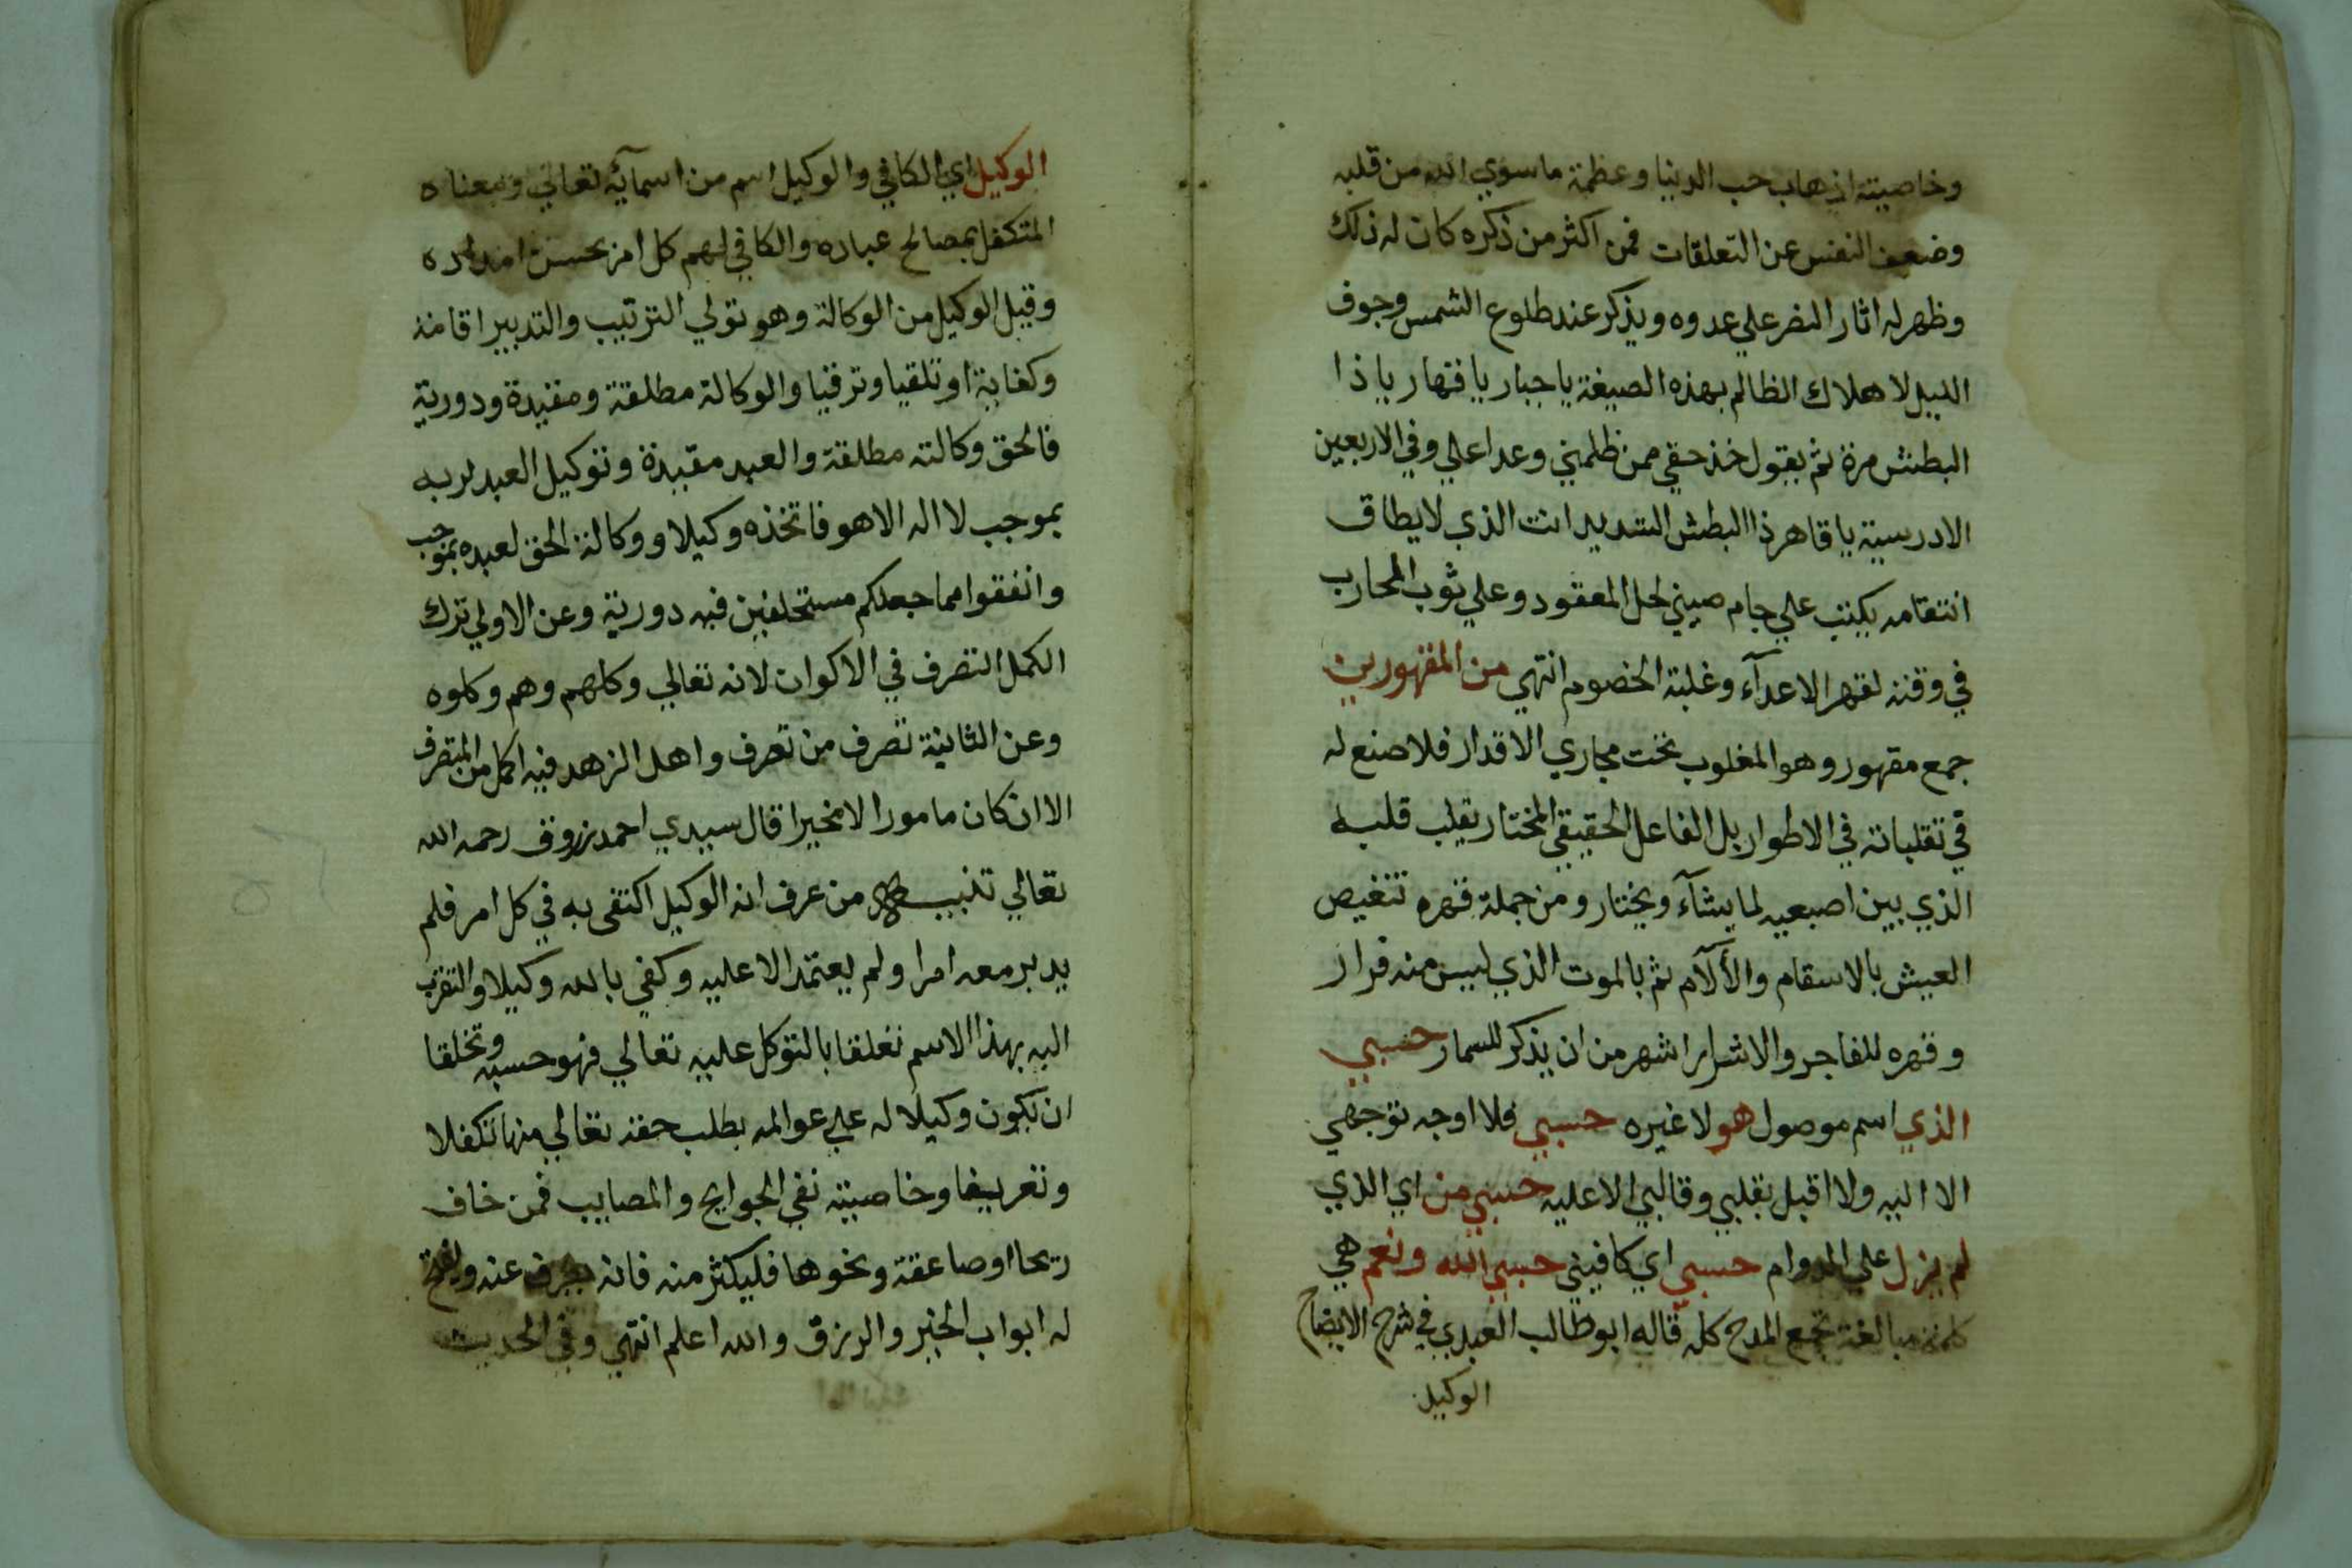 وخاصيته اذهاب حب الدنيا وعظمة ما سوي الله من قلبه
وضعف النفس عن التعلقات فمن اكثر من ذكره كان له ذلك
وظهر له اثار النصر علي عدوه ويذكر عند طلوع الشمس وجوف
الليل لاهلاك الظالم بهذه الصيغة يا جبار يا قهار يا ذا
البطش مرة ثم يقول خذ حقي ممن ظلمني وعدا علي وفي الاربعين
الادرسية يا قاهر ذا البطش الشديد انت الذي لا يطاق
انتقامه يكتب علي جام صيني لحل المعقود وعلي ثوب المحارب
في وقته لقهر الاعدآء وغلبة الخصوم انتهي من المقهورين
جمع مقهور وهو المغلوب تحت مجاري الاقدار فلا صنع له
في تقلباته في الاطوار بل الفاعل الحقيقي المختار يقلب قلبه
الذي بين اصبعيه لما يشآء ويختار ومن جملة قهره تنغيص
العيش بالاسقام والألآم ثم بالموت الذي ليس منه فرار
وقهره للفاجر والاشرار اشهر من ان يذكر للسمار حسبي
الذي اسم موصول هو لا غيره حسبي فلا اوجه توجهي
الا اليه ولا اقبل بقلبي وقالبي الا عليه حسبي من اي الذي
لم يزل علي الدوام حسبي اي كافيني حسبي الله ونعم هي
كلمة مبالغة تجمع المدح كله قاله ابو طالب العبدي في شرح الايضاح
الوكيل
الوكيل اي الكافي والوكيل اسم من اسمآئه تعالي ومعناه
المتكفل بمصالح عباده والكافي لهم كل امر بحسن امداده
وقيل الوكيل من الوكالة وهو تولي الترتيب والتدبير اقامة
وكفاية او تلقيا وترقيا والوكالة مطلقة ومقيدة ودورية
فالحق وكالته مطلقة والعبد مقيدة وتوكيل العبد لربه
بموجب لا اله الا هو فاتخذه وكيلا ووكالة الحق لعبده بموجب
وانفقوا مما جعلكم مستخلفين فيه دورية وعن الاولي ترك
الكمل التصرف في الاكوان لانه تعالي وكلهم وهم وكلوه
وعن الثانية تصرف من تصرف واهل الزهد فيه اكمل من المتصرف
الا ان كان مامورا لا مخيرا قال سيدي احمد زروق رحمه الله
تعالي تنبيه من عرف انه الوكيل اكتفي به في كل امر فلم
يدبر معه امرا ولم يعتمد الا عليه وكفي بالله وكيلا والتقرب
اليه بهذا الاسم تعلقا بالتوكل عليه تعالي فهو حسبه وتخلقا
ان يكون وكيلا له علي عوالمه بطلب حقه تعالي منها تكفلا
وتعريفا وخاصيته نفي الجوايح والمصايب فمن خاف
ريحا او صاعقة ونحوها فليكثر منه فانه يصرف عنه ويفتح
له ابواب الخير والرزق والله اعلم انتهي وفي الحديث